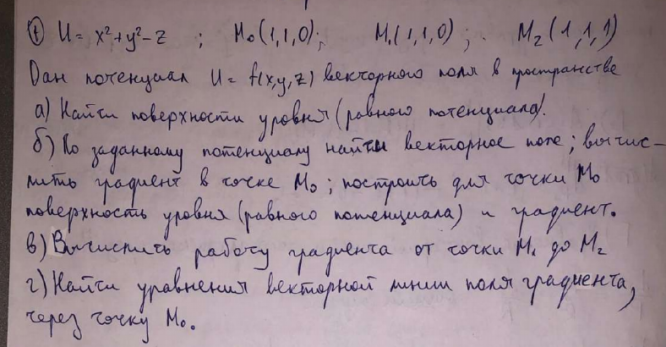 ① U = x²+y²-z ; M₀(1,1,0); M₁(1,1,0) ; M₂(1,1,1)
Дан потенциал U = f(x,y,z) векторного поля в пространстве
а) Найти поверхности уровня (равного потенциала).
б) По заданному потенциалу найти векторное поле; вычис-
лить градиент в точке M₀; построить для точки M₀
поверхность уровня (равного потенциала) и градиент.
в) Вычислить работу градиента от точки M₁ до M₂
г) Найти уравнения векторной линии поля градиента,
через точку M₀.